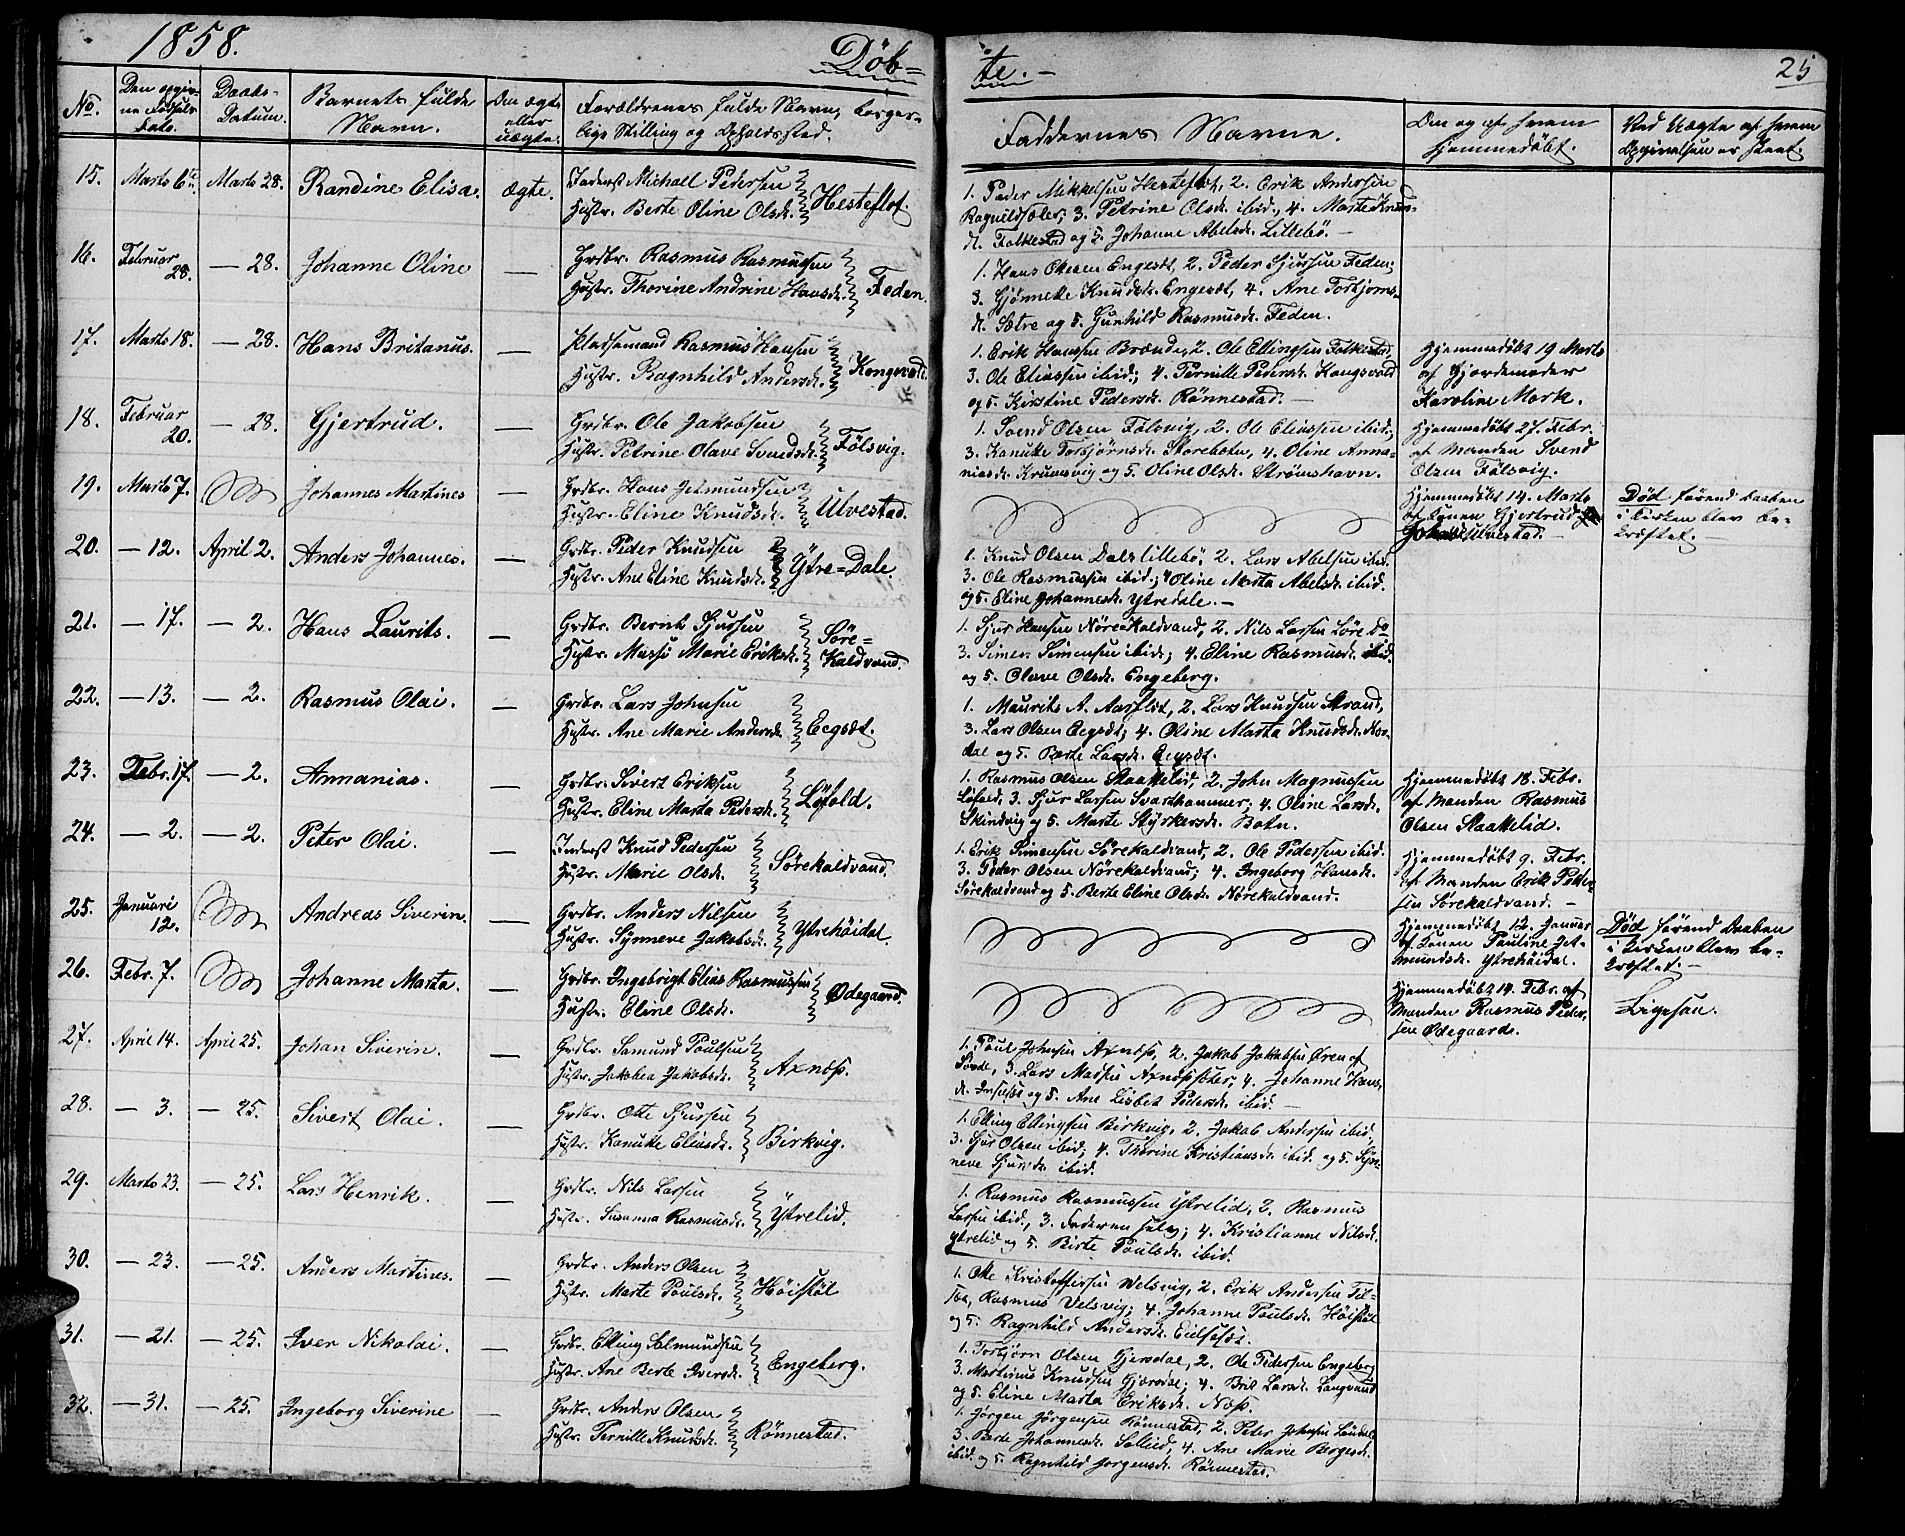 1858.
Döb=
te.-
25
No.
Den opgiv-
ne Födsels
Dato.
Daabs-
Datum.
Barnets fulde
Navn.
Om ægte
eller
uægte.
Forældrenes fulde Navn, borger-
lige Stilling og Opholdssted.
Faddernes Navne.
Om og af hvem
hjemmedöbt.
Ved Uægte af hvem
Opgivelsen er skeet.
15. Marts 6te Marts 28. Randine Elisa. Ægte. Inderst Michall Pedersen
Hustr. Berte Oline Olsdr. Hesteflot.
1. Peder Mikkelsen Hesteflot, 2. Erik Andersen
3. Petrine Olsdr. ibid., 4. Marte Knuds-
dr. Folkestad og 5. Johanne Abelsdr. Lillebö.-
16. Februar
28. — 28. Johanne Oline — Grdbr. Rasmus Rasmussen
Hustr. Thorine Andrine Hansdr. Feden.
1. Hans Ottesen Engesæt, 2. Peder Sjursen Feden;
3. Gjönnette Knudsdr. Engesæt, 4. Ane Torbjorns-
dr. Sætre og 5. Gunhild Rasmusdr. Feden.
17. Marts 18. — 28. Hans Britanus. — Pladsemand Rasmus Hansen
Hustr. Ragnhild Andersdr. Kongsvold.
1. Erik Hansen Brænde, 2. Ole Ellingsen Folkestad,
3. Ole Eliassen ibid.; 4. Pernille Pedersdr. Kongsvold
og 5. Kirstine Pedersdr. Rönnestad.-
Hjemmedöbt 19 Marts
af Gjordemoder
Karoline Mork.
18. Februar
20. — 28. Gjertrud. — Grdbr. Ole Jakobsen
Hustr. Petrine Olave Svendsdr. Fölsvig.
1. Svend Olsen Fölsvig, 2. Ole Eliassen ibid.,
3. Kanutte Torbjörnsdr. Storebotn, 4. Oline Anna-
niasdr. Krumsvig og 5. Oline Olsdr. Strömshavn.
Hjemmedöbt 27. Febr.
af Manden Svend
Olsen Fölsvig.
19. Marts 7. Johannes Martines — Grdbr. Hans Jetmundsen
Hustr. Eline Knudsdr. Ulvestad.
Hjemmedöbt 14. Marts
af Konen Gjertrud
Ulvestad.-
Död förend Daaben
i Kirken blev be-
kræftet.-
20. — 12. April 2. Anders Johannes. — Grdbr. Peder Knudsen
Hustr. Ane Eline Knudsdr. Ytre=Dale.
1. Knud Olsen Dals Lillebö, 2. Lars Abelsen ibid.
3. Ole Rasmussen ibid.; 4 Oline Marta Abelsdr. ibid.
og 5. Eline Johannesdr. Ytredale.-
21. — 17. — 2. Hans Laurits. — Grdbr. Bernt Sjursen
Hustr. Massi Marie Eriksdr. Söre=
Kaldvand.
1. Sjur Hansen Nörekaldvand, 2. Nils Larsen Söre do
3. Simen Simensen ibid; 4. Eline Rasmusdr. ibid.
og 5. Olave Olsdr. Engeberg.
22. — 13. — 2. Rasmus Olai. — Grdbr. Lars Johnsen
Hustr. Ane Marie Andersdr. Eegsæt.
1. Maurits A. Aasflöt, 2. Lars Knudsen Strand,
3. Lars Olsen Eegsæt; 4. Oline Marta Knudsdr. Nor-
dal og 5. Berte Larsdr. Eegsæt.
23. Febr. 17. — 2. Annanias. — Grdbr. Sivert Eriksen
Hustr. Eline Marta Pedersdr. Löfold.
1. Rasmus Olsen Slaattelid, 2. John Magnussen
Löfold, 3. Sjur Larsen Svarthammer; 4. Oline Larsdr.
Skindvig og 5. Marte Styrkersdr. Botn.
Hjemmedöbt 18. Febr.
af Manden Rasmus
Olsen Slaattelid.
24. — 2. — 2. Peter Olai. — Inderst Knud Pedersen
Hustr. Marie Olsdr. Sörekaldvand.
1. Erik Simensen Sörekaldvand, 2. Ole Pedersen ibid.
3. Peder Olsen Nörekaldvand; 4. Ingeborg Hansdr.
Sörekaldvand og 5. Berte Eline Olsdr. Nörekaldvand.
Hjemmedöbt 9. Febr.
af Manden Erik Peder-
sen Sörekaldvand.-
25. Januari
12. Andreas Siverin. — Grdbr. Anders Nilsen
Hustr. Synneve Jakobsdr. Ytrehöidal.
Hjemmedöbt 12. Januar
af Konen Pauline Jet-
mundsdr. Ytrehöidal.
Död förend Daaben
i Kirken blev be-
kræftet.-
26. Febr. 7. Johanne Marta. — Grdbr. Ingebrigt Elias Rasmussen
Hustr. Eline Olsdr. Ødegaard.
Hjemmedöbt 14. Febr. af
Manden Rasmus Peder-
sen Ødegaard.
Ligesaa.
27. April 14. April 25. Johan Siverin. — Grdbr. Samund Poulsen
Hustr. Jakobea Jakobsdr. Axnæs.
1. Poul Johnsen Axnæs, 2. Jakob Jakobsen Øren af
3. Lars Madsen Axnæssæter; 4. Johanne Hans-
dr. og 5. Ane Lisbet Pedersdr. ibid.-
28. — 3. — 25. Sivert Olai. — Grdbr. Otte Sjursen
Hustr. Kanutte Eliasdr. Birkvig.
1. Elling Ellingsen Birkvig, 2. Jakob Andersen ibid,
3. Sjur Olsen ibid, 4. Thorine Kristiansdr. ibid. og 5. Syn-
neve Sjursdr. ibid.
29. Marts 23. — 25. Lars Henrik. — Grdbr. Nils Larsen
Hustr. Susanna Rasmusdr. Ytrelid.
1. Rasmus Rasmussen Ytrelid, 2. Rasmus
Larsen ibid, 3. Faderen selv; 4. Kristianne Nilsdr.
Ytrelid og 5. Birte Poulsdr. ibid.
30. — 23. — 25. Anders Martines. — Grdbr. Anders Olsen
Hustr. Marte Poulsdr. Höistöl
1. Otte Kristoffersen Velsvig, 2. Erik Andersen
Rasmus Velsvig; 4. Johanne Poulsdr. Höistöl
og 5. Ragnhild Andersdr. Eidsesæt.
31. — 21. — 25. Iver Nikolai. — Grdbr. Elling Salmundsen
Hustr. Ane Berte Iversdr. Engeberg.
1. Torbjörn Olsen Gjersdal, 2. Ole Pedersen Engeberg
3. Martinus Knudsen Gjersdal; 4. Brit Larsdr. Langvand
og 5. Eline Marta Eriksdr. Næss.
32. — 31. — 25. Ingeborg Siverine — Grdbr. Anders Olsen
Hustr. Pernille Knudsdr. Rönnestad.
1. Jörgen Jörgensen Rönnestad, 2. Peter Johnsen
3. Berte Johannesdr. 4. Ane Marie
ibid. og 5. Ragnhild Jorgensdr. Rönnestad.